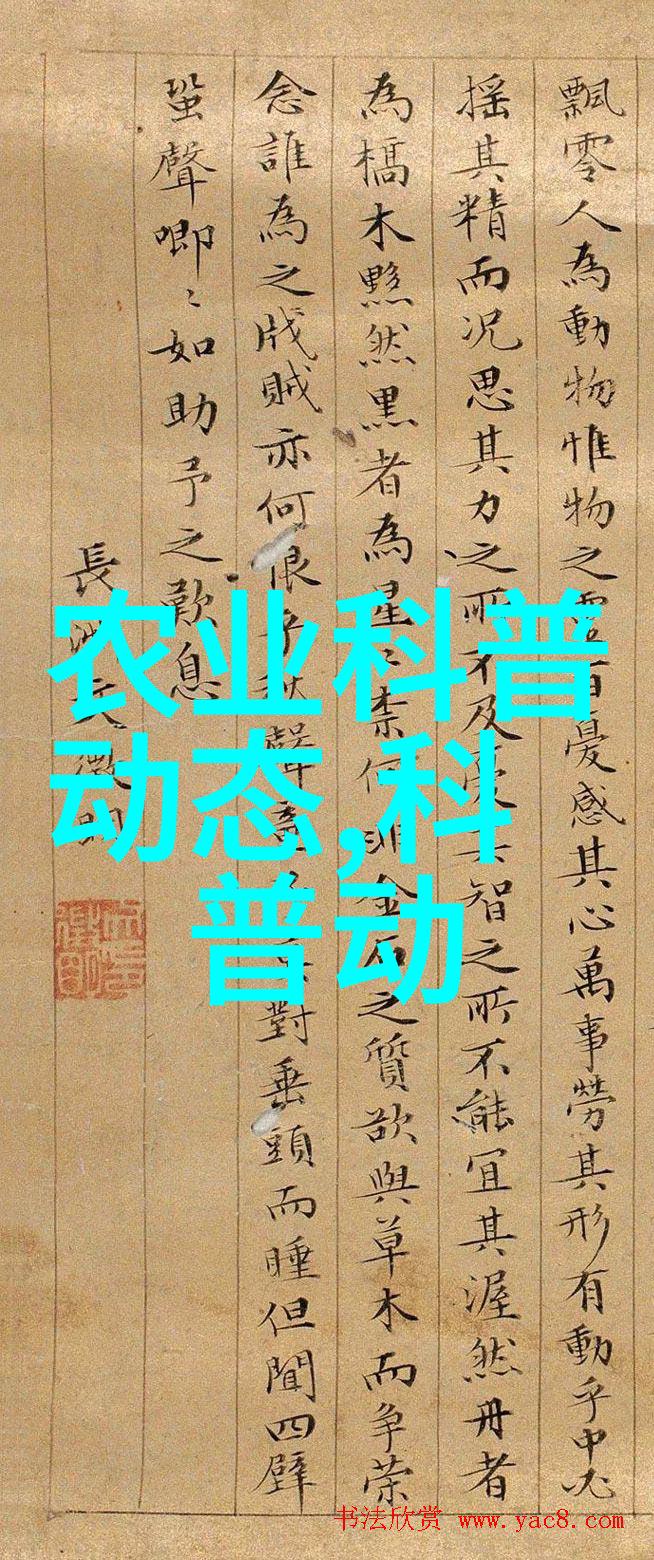 飄零人為動物惟物之靈百憂感其心萬事勞其形有動乎中必
搖其精而況思其力之所不及憂其智之所不能宜其渥然丹者
為槁木黟然黑者為星〻柰何非金石之質欲與草木而爭榮
念誰為之戕賊亦何恨乎秋聲童莫對垂頭而睡但聞四壁
蛩聲唧〻如助予之歎息
長洲文徵明
农业科普
动态,科
普动
书法欣赏 www.yac8.com